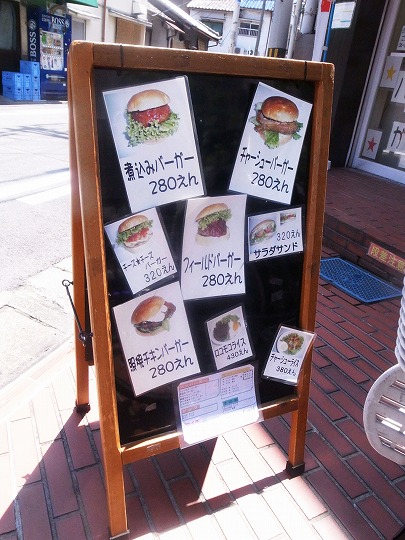 煮込みバーガー
280えん
チャーシューバーガー
280えん
チーズ
バーガー
320えん
フィールドバーガー
280えん
320えん
サラダサンド
チキンバーガー
280えん
ロコモコライス
430えん
チャーシューライス
380えん
BOSS
BOSS
段差注意